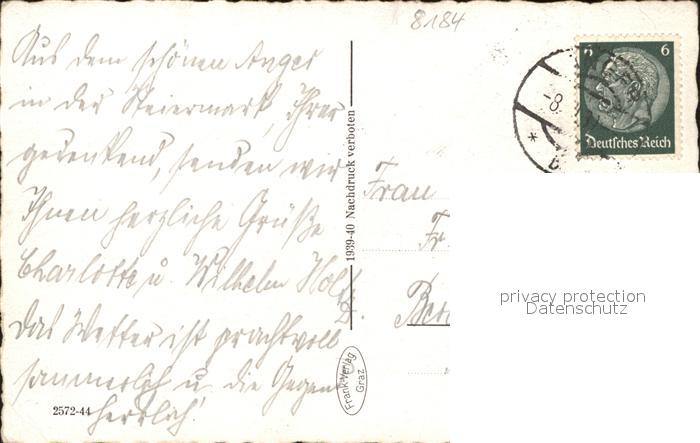 8184
Aus dem schönen Anger
in der Steiermark, Ihrer
gedenkend, senden wir
Ihnen herzliche Grüße
Charlotte u. Wilhelm
Das Wetter ist prachtvoll
sommerlich u. die Gegend
herrlich!
2572-44
1939-40 Nachdruck verboten
Frank-Verlag
Graz
6 6
Deutsches Reich
-8.
Frau
Fr.
privacy protection
Datenschutz